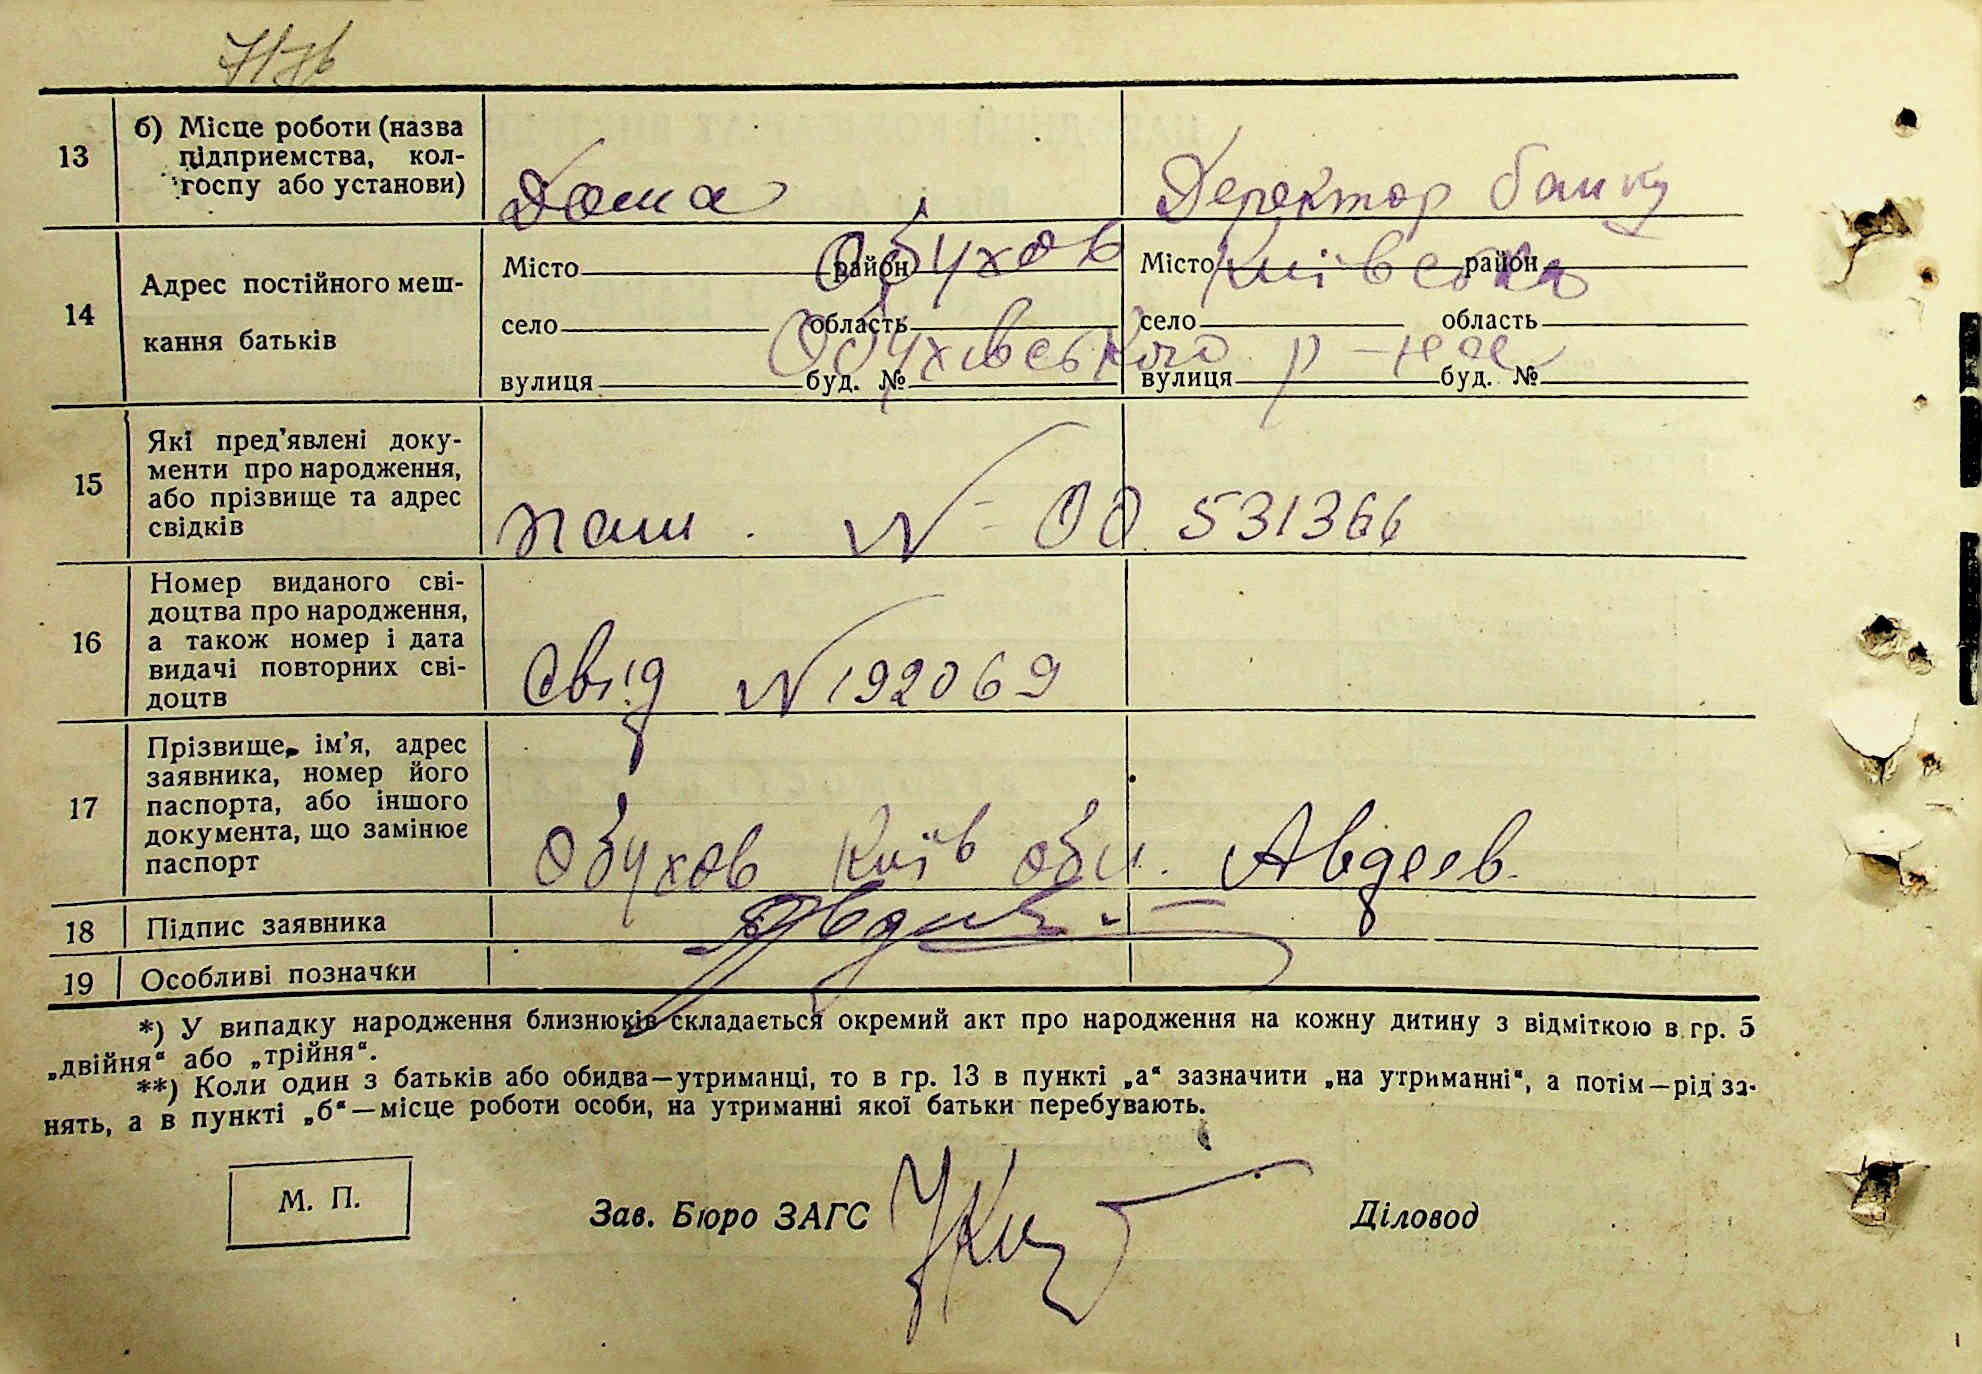 13
б) Місце роботи (назва
підприємства, кол-
госпу або установи)
Дома
Деректор банку
14
Адрес постійного меш-
кання батьків
Місто район
село область
вулиця буд. №
Місто район
село область
вулиця буд. №
Обухов Київська
Обухівського р-на
15
Які пред'явлені доку-
менти про народження,
або прізвище та адрес
свідків
паш. № 00 531366
16
Номер виданого сві-
доцтва про народження,
а також номер і дата
видачі повторних сві-
доцтв
Свід № 192069
17
Прізвище, ім'я, адрес
заявника, номер його
паспорта, або іншого
документа, що замінює
паспорт
Обухов Київ обл. Авдеев.
18
Підпис заявника
19
Особливі позначки
*) У випадку народження близнюків складається окремий акт про народження на кожну дитину з відміткою в гр. 5
„двійня“ або „трійня“.
**) Коли один з батьків або обидва—утриманці, то в гр. 13 в пункті „а“ зазначити „на утриманні“, а потім—рід за-
нять, а в пункті „б“—місце роботи особи, на утриманні якої батьки перебувають.
М. П.
Зав. Бюро ЗАГС
Діловод